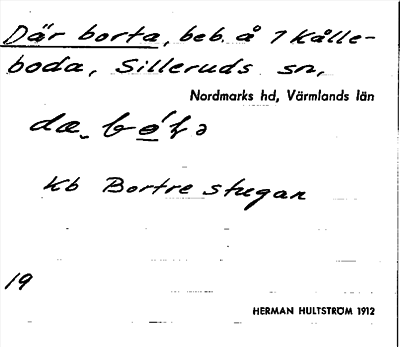 Där borta, beb. å 1 Kålle-
boda, Silleruds sn,
Nordmarks hd, Värmlands län
Kb Bortre stugan
19
HERMAN HULTSTRÖM 1912